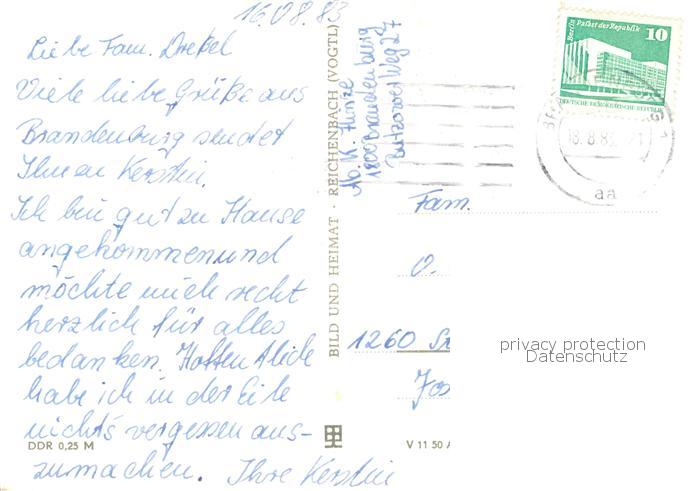 16.08.83
Liebe Fam. Drexel
Viele liebe Grüße aus
Brandenburg sendet
Ihnen Kerstin.
Ich bin gut zu Hause
angekommen und
möchte mich recht
herzlich für alles
bedanken. Hoffentlich
habe ich in der Eile
nichts vergessen aus-
zumachen. Ihre Kerstin
DDR 0,25 M
BILD UND HEIMAT · REICHENBACH (VOGTL)
Ab. K. Hinze
1800 Brandenburg
Butzower Weg 27
Berlin, Palast der Republik
10
DEUTSCHE DEMOKRATISCHE REPUBLIK
18.8.83
aa
Fam.
O.
1260
privacy protection
Datenschutz
V 11 50